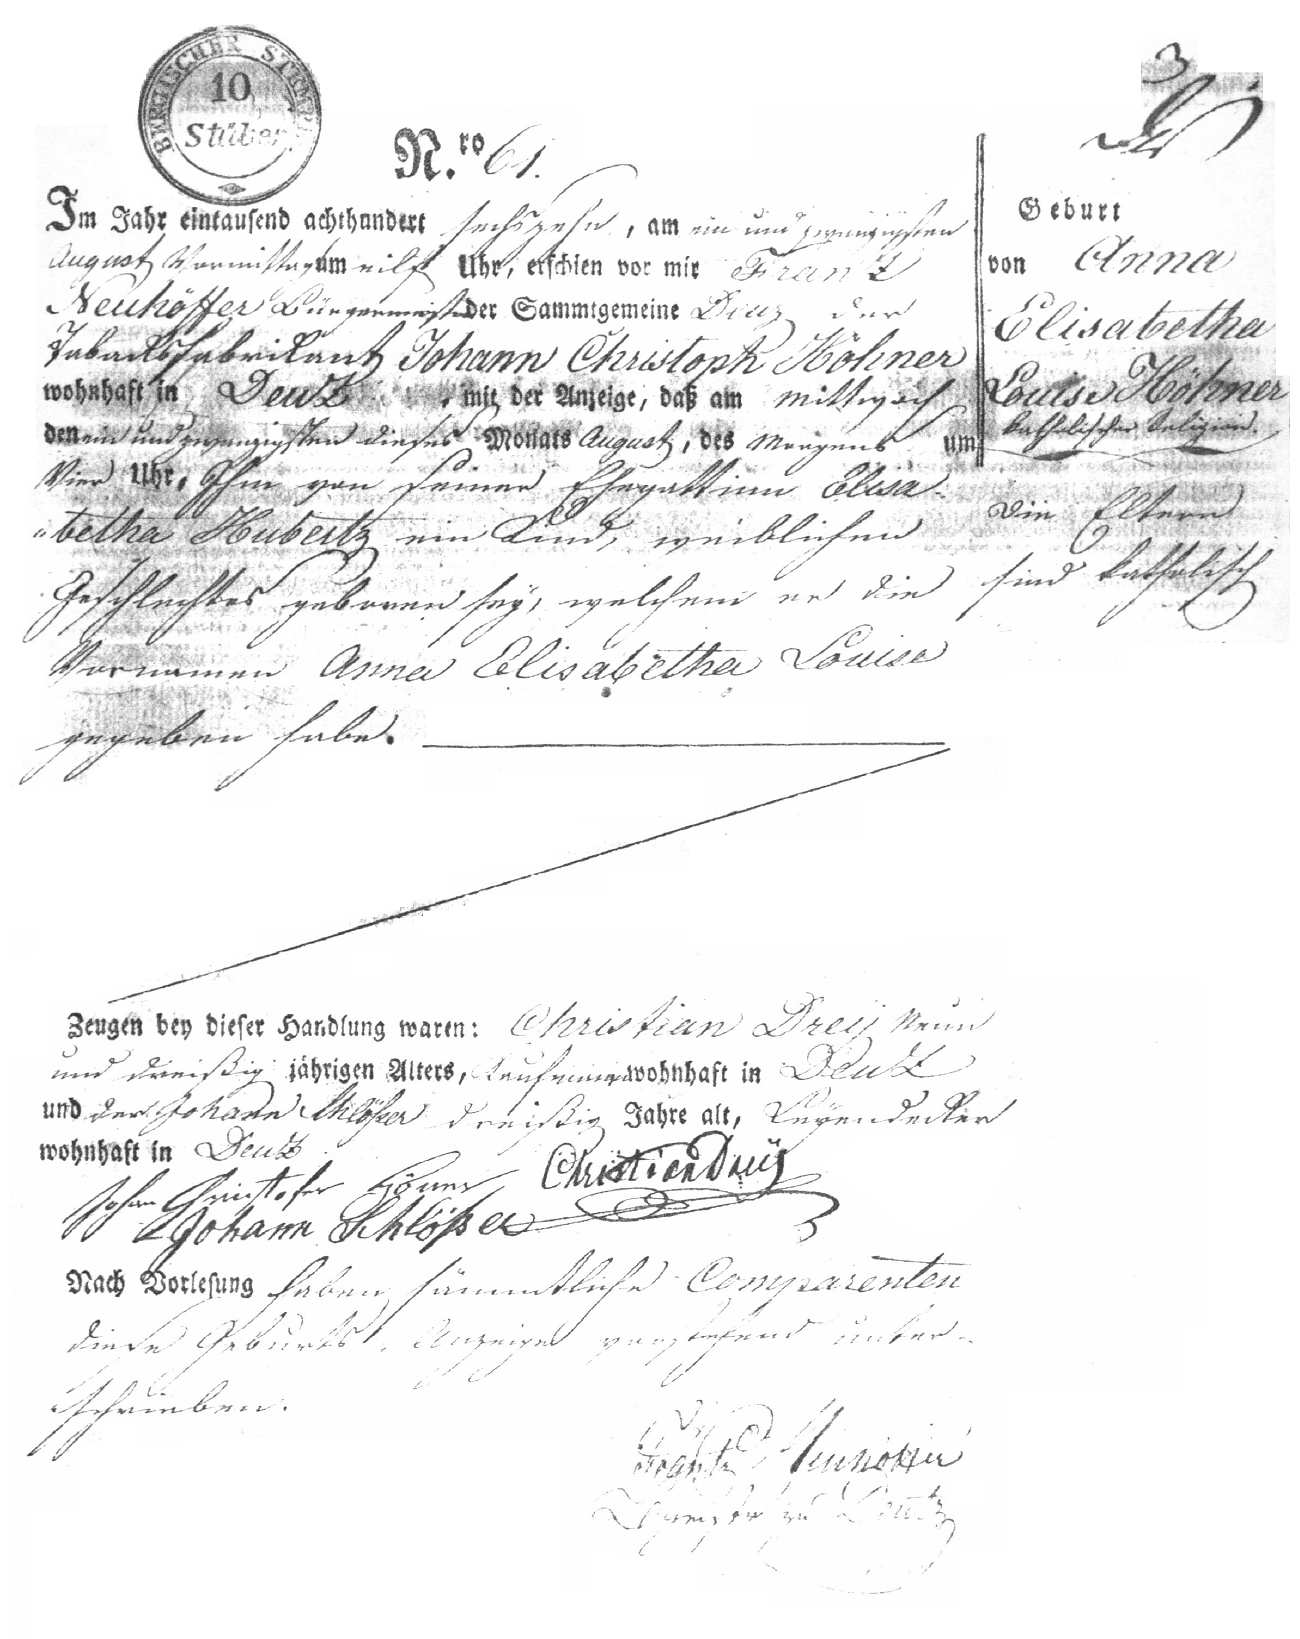 BERGISCHER STEMPEL
10
Stüber
N.ro 61.
Im Jahr eintausend achthundert sechszehn, am ein und zwanzigsten
August Vormittag um eilf Uhr, erschien vor mir Franz
Neuhöffer Bürgermeister der Sammtgemeine Deuz der
Tabacksfabrikant Johann Christoph Höhner
wohnhaft in Deutz, mit der Anzeige, daß am mittwoch
den ein und zwanzigsten dieses Monats August, des Morgens um
Vier Uhr, Ihm von seiner Ehegattinn Elisa
"betha Hubertz ein Kind, weiblichen
Geschlechtes geboren sey, welchem er die
Vornamen Anna Elisabetha Louisa
gegeben habe.
Geburt
von Anna
Elisabetha
Louise Höhner
katholischer Religion.
Die Eltern
sind katholisch
Zeugen bey dieser Handlung waren: Christian Drey Neun
und dreißig jährigen Alters, Kaufmann wohnhaft in Deutz
und der Johann Schlößer dreißig Jahre alt, Leyendecker
wohnhaft in Deutz
Johan Christofer Höner Christian Dreÿ
Johann Schlößer
Nach Vorlesung haben sämmtliche Comparenten
diese Geburts-Anzeige vorstehend unter-
schrieben.
Neuhöffer
zu Deutz